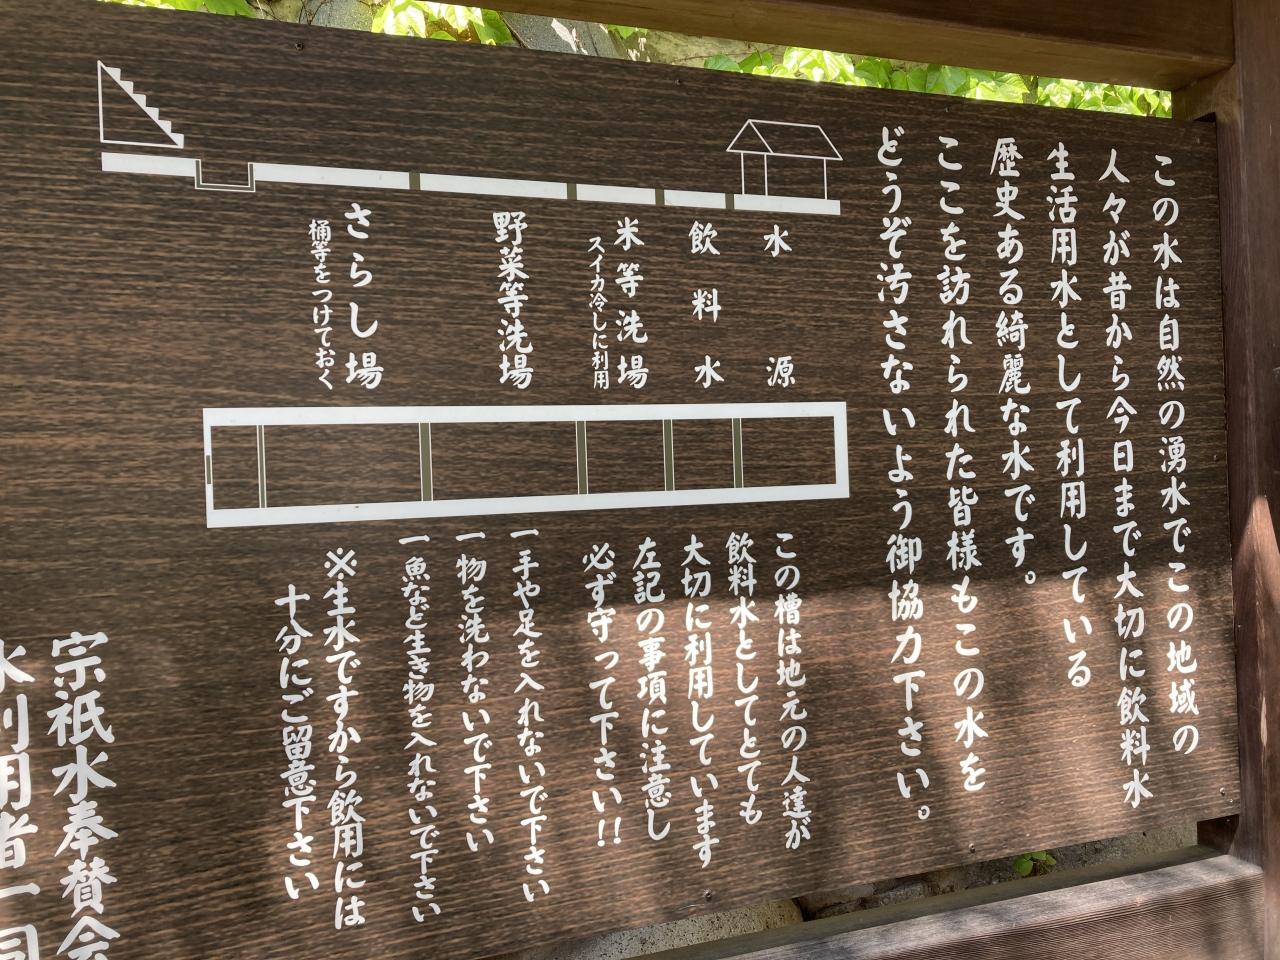 この水は自然の湧水でこの地域の
人々が昔から今日まで大切に飲料水
生活用水として利用している
歴史ある綺麗な水です。
ここを訪れられた皆様もこの水を
どうぞ汚さないよう御協力下さい。
水源
飲料水
米等洗場
スイカ冷しに利用
野菜等洗場
さらし場
桶等をつけておく
この槽は地元の人達が
飲料水としてとても
大切に利用しています
左記の事項に注意し
必ず守って下さい!!
一手や足を入れないで下さい
一物を洗わないで下さい
一魚など生き物を入れないで下さい
※生水ですから飲用には
十分にご留意下さい
宗祇水奉賛会
水利用者一同